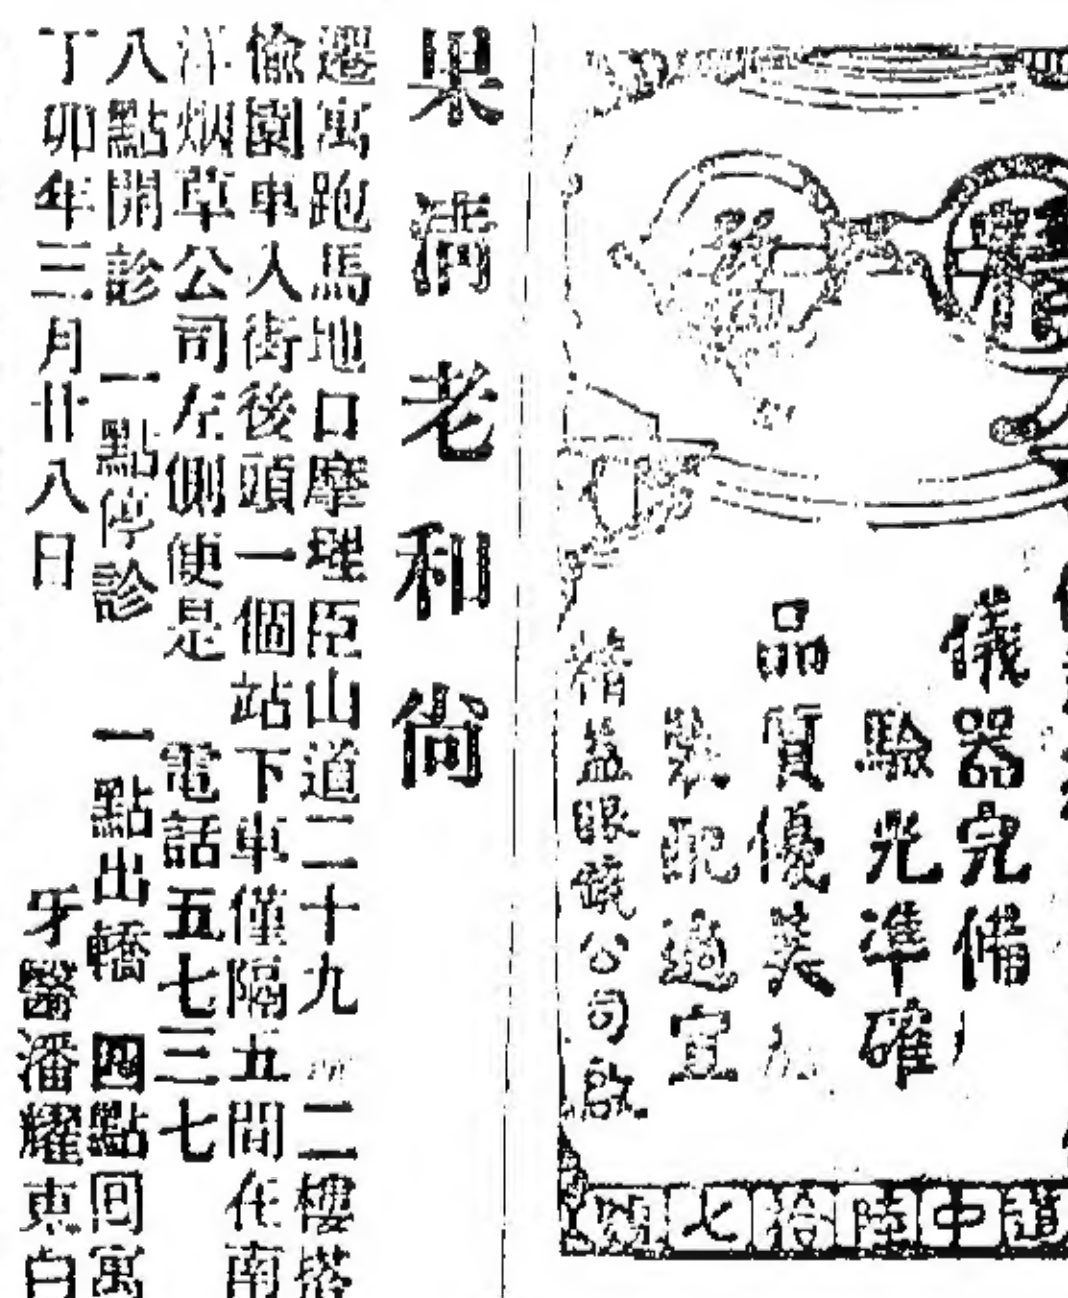 儀器完備
驗光準確
品質優美
裝配適宜
精益眼鏡公司啟
道中陸拾七號
果淸老和尙
遷寓跑馬地口摩理臣山道二十九 二樓搭
愉園車入街後頭一個站下車僅隔五間在南
洋烟草公司左側便是 電話五七三七
八點開診 一點停診 一點出轎 四點回寓
丁卯年三月廿八日 牙醫潘耀東白